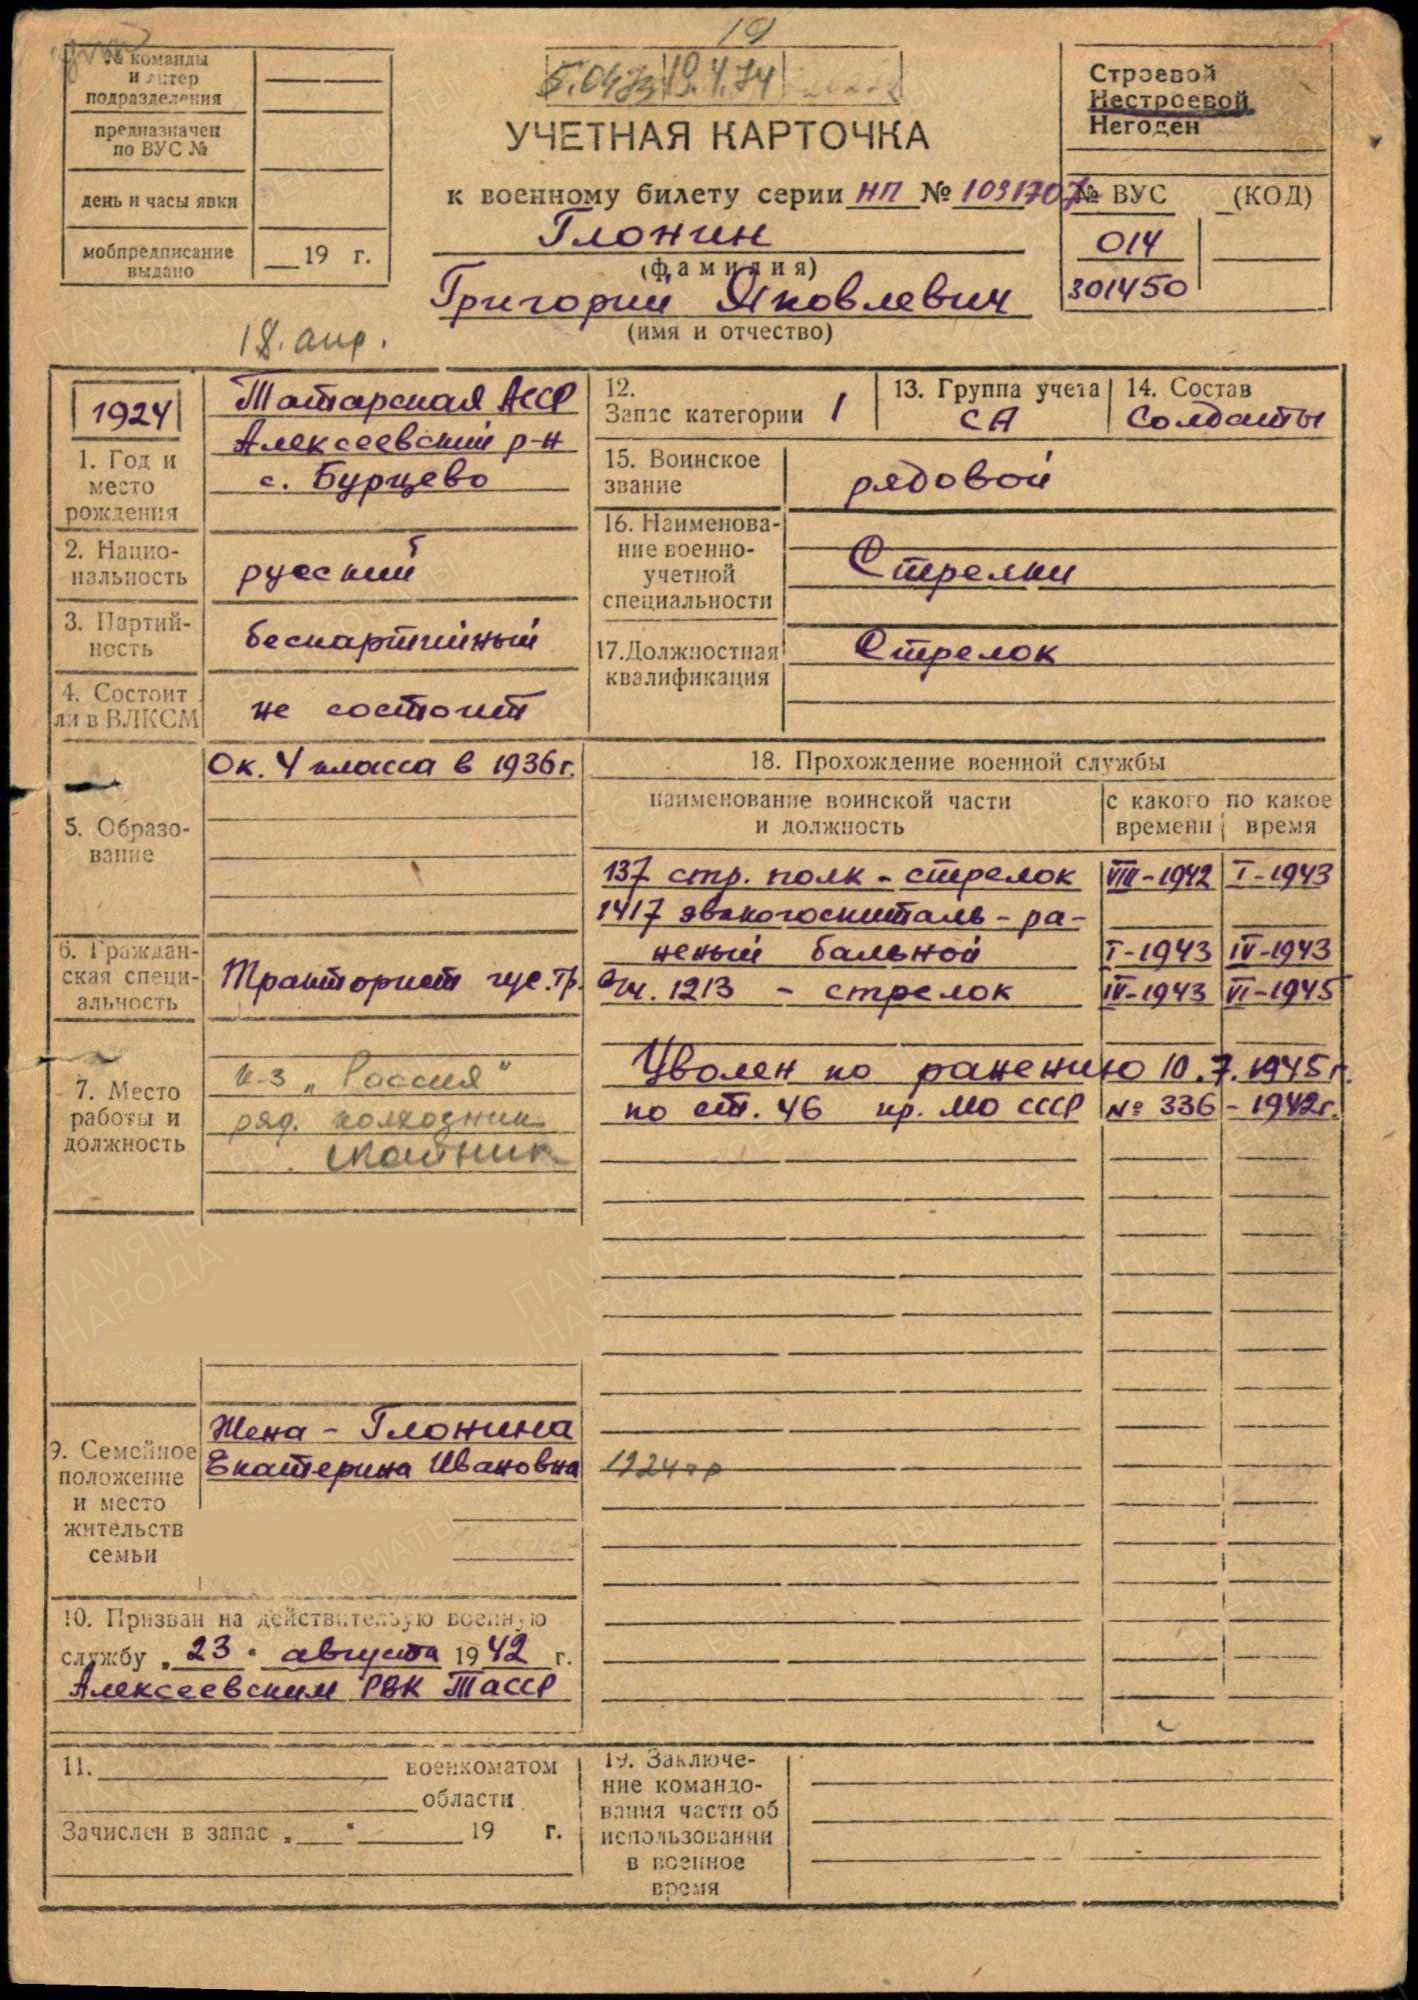 19
№ команды
и литер
подразделения
предназначен
по ВУС №
день и часы явки
мобпредписание
выдано
19 г.
5.04.73 19.4.74
УЧЕТНАЯ КАРТОЧКА
к военному билету серии НП № 1031707
Глонин
(фамилия)
Григорий Яковлевич
(имя и отчество)
Строевой
Нестроевой
Негоден
№ ВУС (КОД)
014
301450
18. апр.
1924
1. Год и
место
рождения
Татарская АССР
Алексеевский р-н
с. Бурцево
2. Нацио-
нальность
русский
3. Партий-
ность
беспартийный
4. Состоит
ли в ВЛКСМ
не состоит
5. Образо-
вание
Ок. 4 класса в 1936 г.
6. Граждан-
ская специ-
альность
Тракторист гус. тр.
7. Место
работы и
должность
к-з „Россия"
ряд. колхозник
9. Семейное
положение
и место
жительств
семьи
Жена - Глонина
Екатерина Ивановна
10. Призван на действительную военную
службу „23" августа 1942 г.
Алексеевским РВК ТАССР
11. военкоматом
области
Зачислен в запас „ " 19 г.
12.
Запас категории 1
13. Группа учета
СА
14. Состав
Солдаты
15. Воинское
звание
рядовой
16. Наименова-
ние военно-
учетной
специальности
Стрелки
17. Должностная
квалификация
Стрелок
18. Прохождение военной службы
наименование воинской части
и должность
с какого
времени
по какое
время
137 стр. полк - стрелок VIII-1942 I-1943
1417 эвакогоспиталь - ра-
неный бальной I-1943 IV-1943
в/ч. 1213 - стрелок IV-1943 VI-1945
Уволен по ранению 10.7.1945 г.
по ст. 46 пр. МО СССР № 336 - 1942 г.
19. Заключе-
ние командо-
вания части об
использовании
в военное
время
ПАМЯТЬ
НАРОДА
ВОЕНКОМАТЫ